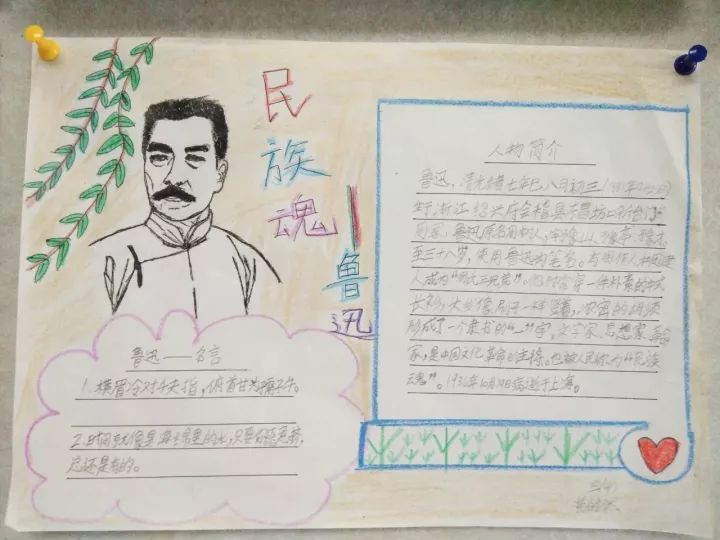 民族魂——鲁迅
鲁迅——名言
1.横眉冷对千夫指,俯首甘为孺子牛。
2.时间就像是海绵里的水,只要你愿意挤,
总还是有的。
人物简介
鲁迅,清光绪七年巳八月初三
生于浙江绍兴府会稽县东昌坊口新台门
周家,鲁迅原名周樟人,字豫山、豫亭、豫才
至三十八岁,使用鲁迅为笔名。与周作人、周建
人成为“周氏三兄弟”。他时常穿一件朴素的中式
长衫,头发像刷子一样竖着,浓密的胡须
形成了一个隶书的“一”字。文学家、思想家、革命
家,是中国文化革命的主将。也被人民称为“民族
魂”。1936年10月19日病逝于上海。
三(4)